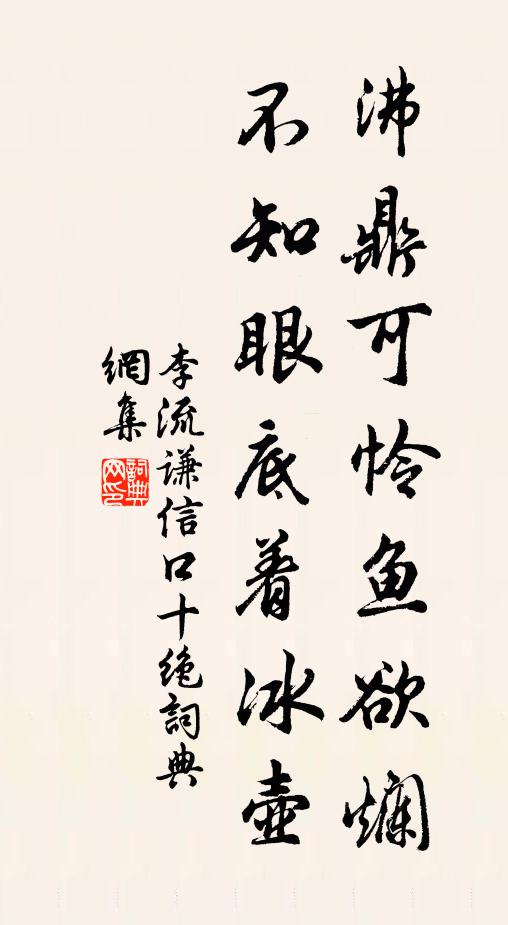 沸鼎可怜鱼欲爛
不知眼底着冰壺
李流谦信口十绝詞典
網集
詞典
网印